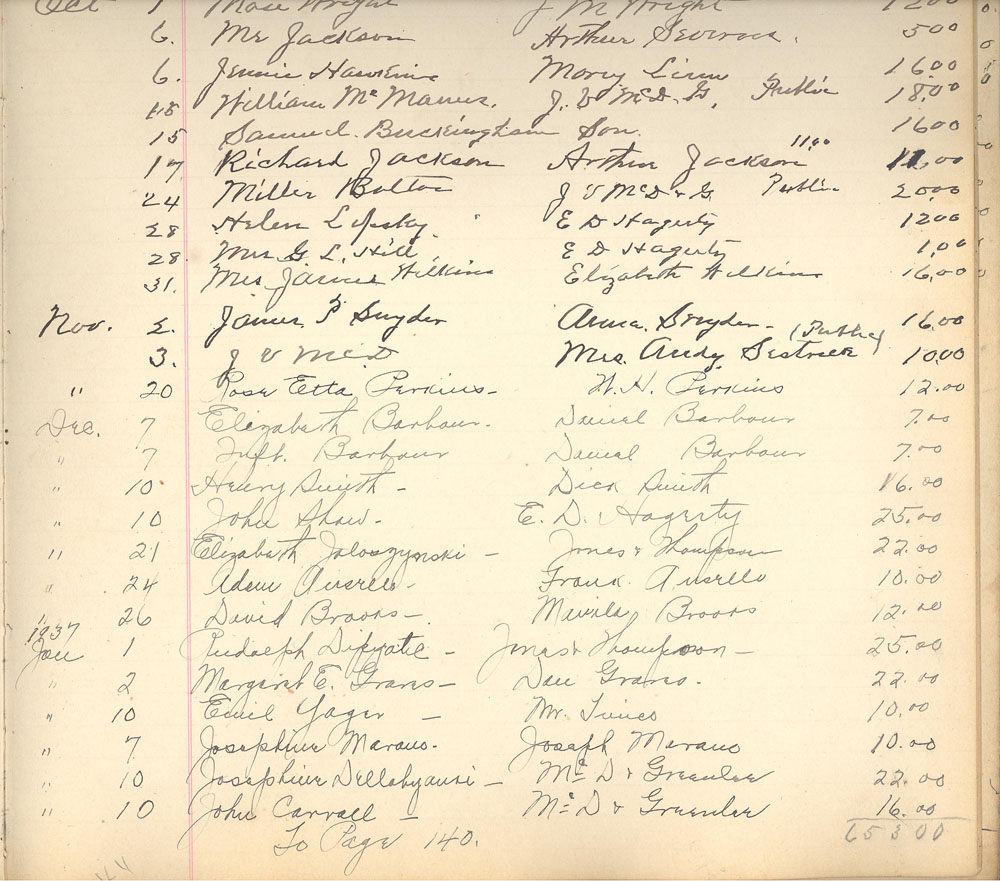 Oct 1 Mose Wright J M Wright 1200
6. Mr Jackson Arthur 500
6. Jennie Hawkins Mary Linn 16.00
15 William McManus. J. V McD. G. Public 18.00
15 Samuel Buckingham Son. 1600
17 Richard Jackson Arthur Jackson 11.00 11.00
24 Miller Bolton J V McD & G Public 20.00
28 Helen Lipsky. E D Hagerty 1200
28 Mrs G. L. Hill E D Hagerty 1.00
31. Mrs James Wilkins Elizabeth Wilkins 16.00
Nov. 2. James P Snyder Anna Snyder - 16.00
3. J V McD Mrs. Andy (Public) 10.00
" 20 Rose Etta Perkins - W. H. Perkins 12.00
Dec. 7 Elizabeth Barbour. Daniel Barbour 7.00
" 7 Inft. Barbour Daniel Barbour 7.00
" 10 Henry Smith - Dick Smith 16.00
" 10 John Shaw. E. D. Hagerty 25.00
" 21 Elizabeth Joloszynski - Jones & Thompson 22.00
" 24 Adam Ausello - Frank Ausello 10.00
" 26 David Brooks - Brooks 12.00
1937
Jan 1 Rudolph - Jones & Thompson - 25.00
" 2 Margaret E. Graves - Dan Graves. 22.00
" 10 Emil Yager - Mr. 10.00
" 7 Josephine Marano. Joseph Marano 10.00
" 10 Josephine - McD & Greenlee 22.00
" 10 John Carroll - McD & Greenlee 16.00
To Page 140. 653 00